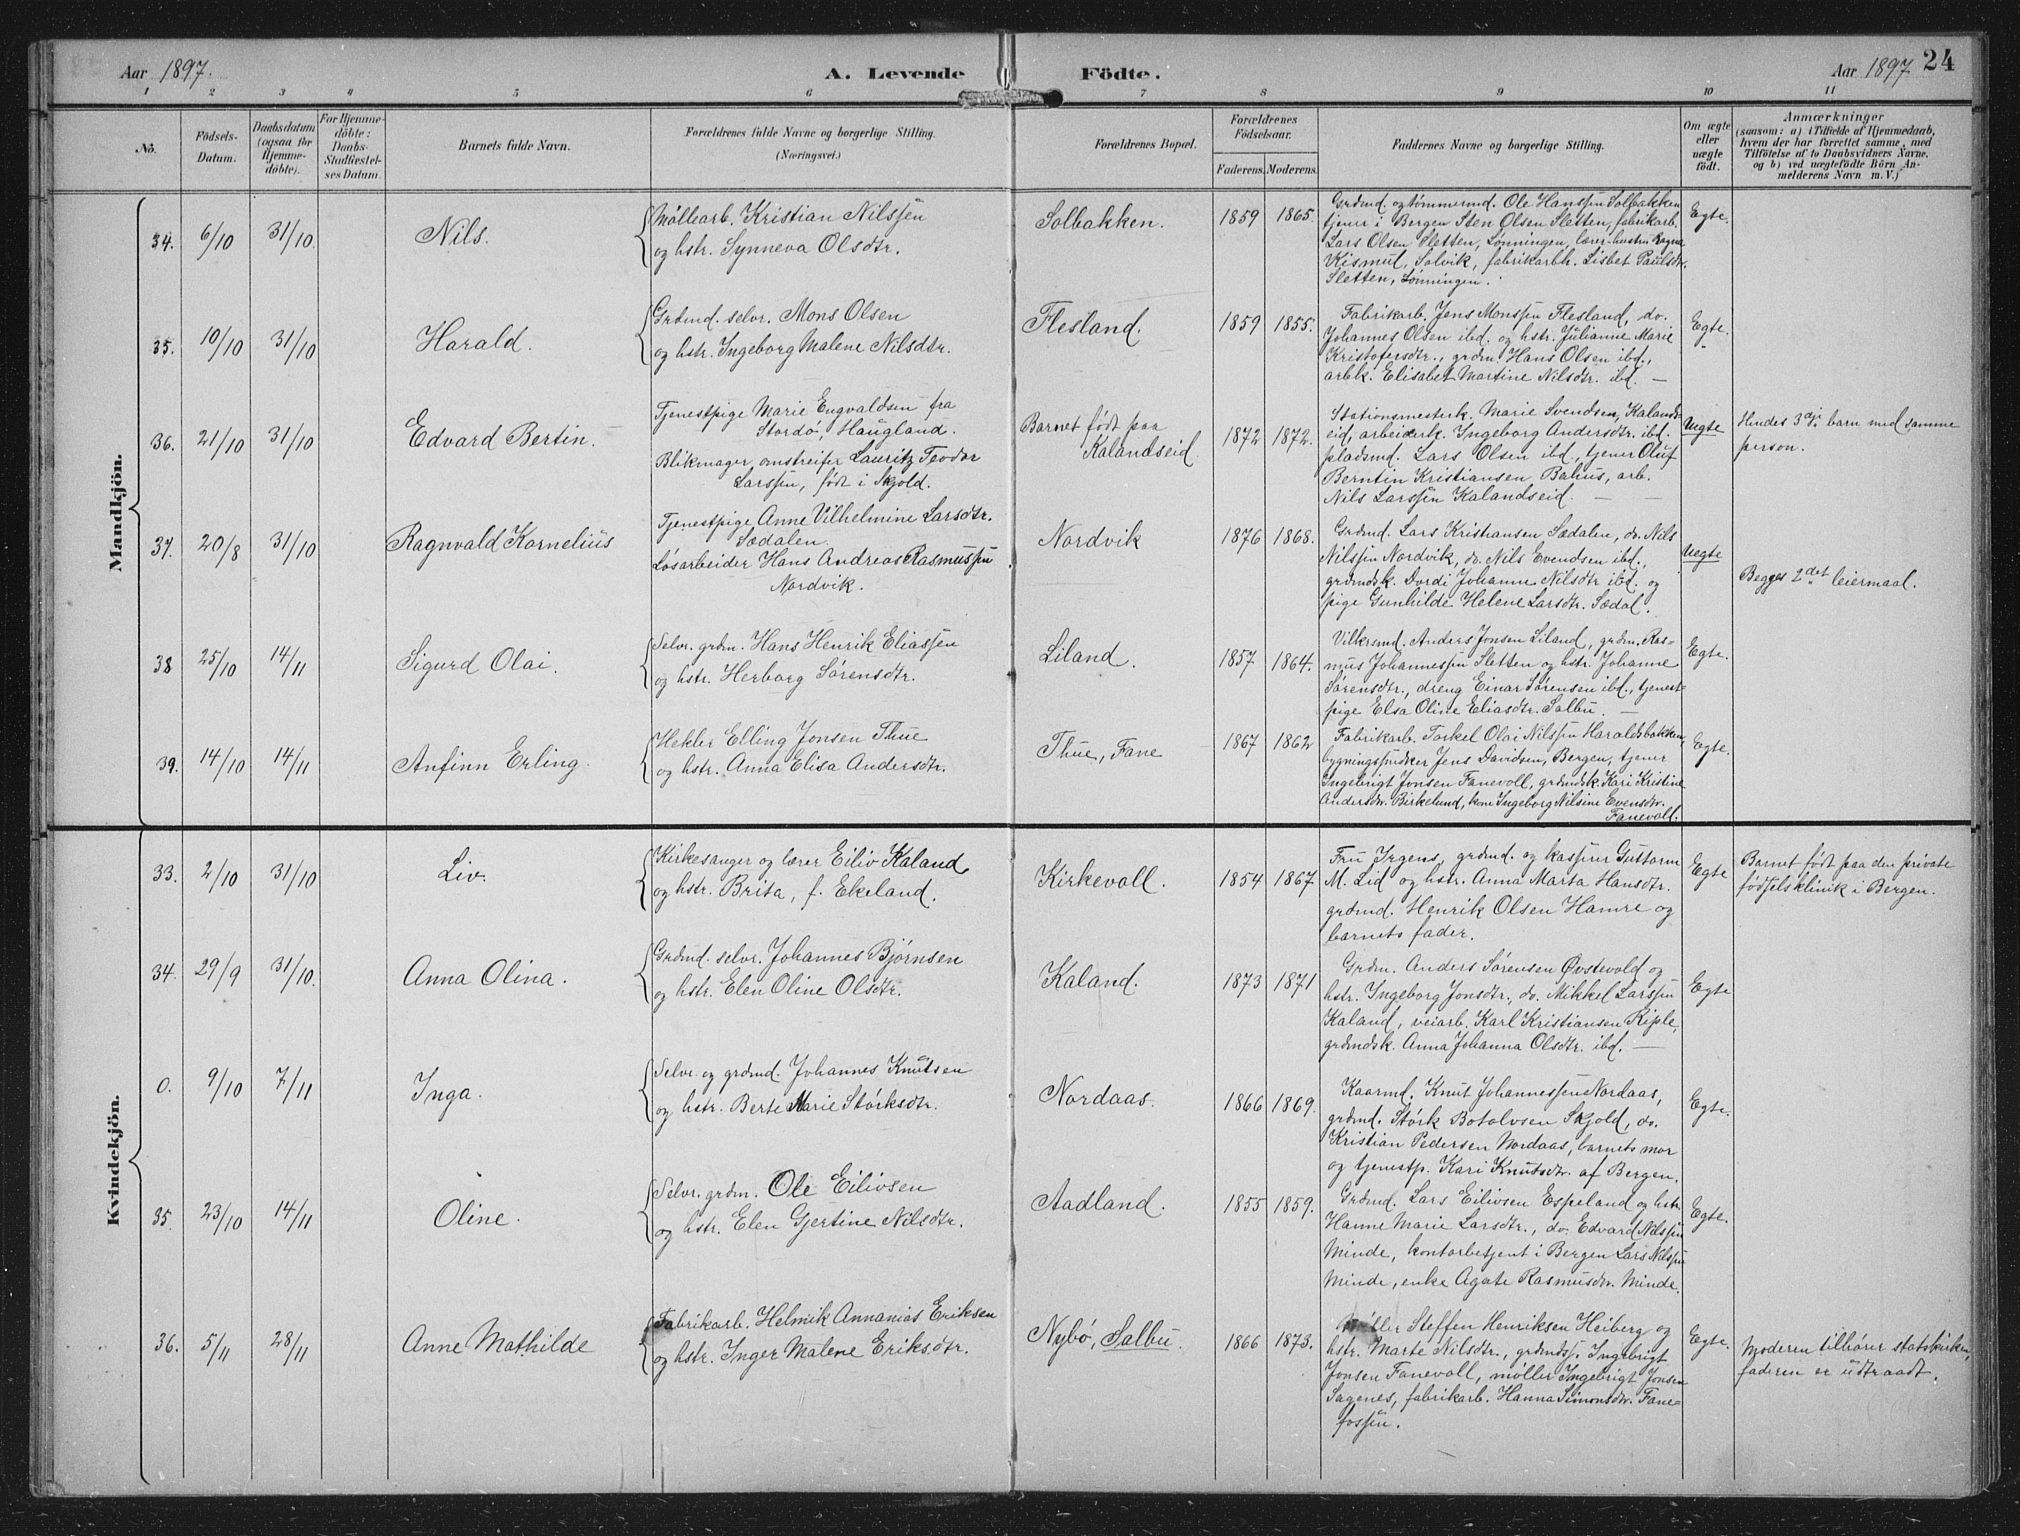 Aar 1897.
A. Levende Födte.
Aar 1897 24
1 2 3 4 5 6 7 8 9 10 11
No.
Födsels-
Datum.
Daabsdatum
(ogsaa för
Hjemme-
döbte).
For Hjemme-
döbte:
Daabs-
Stadfæstel-
ses Datum.
Barnets fulde Navn.
Forældrenes fulde Navne og borgerlige Stilling.
(Næringsvei.)
Forældrenes Bopæl.
Forældrenes
Födselsaar.
Faderens. Moderens.
Faddernes Navne og borgerlige Stilling.
Om ægte
eller
uægte
födt.
Anmærkninger
(saasom: a) i Tilfælde af Hjemmedaab,
hvem der har forrettet samme, med
Tilföielse af to Daabsvidners Navne.
og b) ved uægtefödte Börn An-
melderens Navn m. V.)
Mandkjön.
34. 6/10 31/10 Nils.
Møllearb. Kristian Nilssen
og hstr. Synneva Olsdtr.
Solbakken. 1859 1865.
Grdmd. og tømmermd. Ole Hanssen Solbakken
tjener i Bergen Sten Olsen Sletten, fabrikarb.
Lars Olsen Sletten, Lønningen, lærer-hustru Ragna
Kismul, Solvik, fabrikarbk. Lisbet Paulsdtr.
Sletten, Lønningen.
Egte.
35. 10/10 31/10 Harald.
Grdmd. selvr. Mons Olsen
og hstr. Ingeborg Malene Nilsdtr.
Flesland. 1859 1855.
Fabrikarb. Jens Monssen Flesland, do.
Johannes Olsen ibd. og hstr. Julianne Marie
Kristofersdtr., grdm. Hans Olsen ibd.,
arbk. Elisabet Martine Nilsdtr. ibd. —
Egte.
36. 21/10 31/10 Edvard Bertin.
Tjenestpige Marie Engvaldsen fra
Stordø, Haugland.
Blikmager, omstreifer Lauritz Teodor
Larssen, født i Skjold.
Barnet født paa
Kalandseid. 1872 1872.
Stationsmesterk. Marie Svendsen, Kalands-
eid, arbeiderk. Ingeborg Andersdtr. ibd.
pladsmd. Lars Olsen ibd, tjener Oluf
Berntin Kristiansen Bahus, arb.
Nils Larssen Kalandseid. —
Uegte
Hendes 3dje barn med samme
person.
37. 20/8 31/10 Ragnvald Kornelius
Tjenestpige Anne Vilhelmine Larsdtr.
Sædalen.
Løsarbeider Hans Andreas Rasmussen
Nordvik.
Nordvik 1876 1868.
Grdmd. Lars Kristiansen Sædalen, do. Nils
Nilssen Nordvik, do. Nils Evendsen ibd.,
grdmdsk. Dordi Johanne Nilsdtr ibd. og
pige Gunhilde Helene Larsdtr. Sædal.
Uegte
Begges 2det leiermaal.
38 25/10 14/11 Sigurd Olai.
Selvr. grdm. Hans Henrik Eliassen
og hstr. Herborg Sørensdtr.
Liland. 1857 1864.
Vilkrsmd. Anders Jonsen Liland, grdm. Ras-
mus Johannessen Sletten og hstr. Johanne
Sørensdtr., dreng Einar Sørensen ibd., tjenest-
pige Elsa Oline Eliasdtr. Salbu. —
Egte.
39. 14/10 14/11 Anfinn Erling.
Hekler Elling Jonsen Thue
og hstr. Anna Elisa Andersdtr.
Thue, Fane 1867 1862
Fabrikarb. Torkel Olai Nilssen Haraldsbakken,
bygningssnedker Jens Davidsen, Bergen, tjener
Ingebrigt Jonsen Fanevoll, grdmdsk. Kari Kristine
Andersdtr. Birkelund, kone Ingeborg Nilsine Evensdtr.
Fanevoll.
Egte.
Kvindekjön.
33. 2/10 31/10 Liv.
Kirkesanger og lærer Eiliv Kaland
og hstr. Brita, f. Ekeland.
Kirkevoll. 1854 1867
Fru Irgens, grdmd. og kasserer Guttorm
M. Lid og hstr. Anna Marta Hansdtr.
grdmd. Henrik Olsen Hamre og
barnets fader.
Egte
Barnet født paa den private
fødselsklinik i Bergen.
34. 29/9 31/10. Anna Olina.
Grdmd. selvr. Johannes Bjørnsen
og hstr. Elen Oline Olsdtr.
Kaland. 1873 1871
Grdm. Anders Sørensen Øvstevold og
hstr. Ingeborg Jonsdtr., do. Mikkel Larssen
Kaland, veiarb. Karl Kristiansen Riple,
grdmdsk. Anna Johanna Olsdtr. ibd. —
Egte
0. 9/10 7/11 Inga.
Selvr. og grdmd. Johannes Knutsen
og hstr. Berte Marie Størksdtr.
Nordaas. 1866 1869.
Kaarmd. Knut Johannessen Nordaas,
grdmd. Størk Botolvsen Skjold, do.
Kristian Pedersen Nordaas, barnets mor
og tjenestp. Kari Knutsdtr. af Bergen.
Egte.
35. 23/10 14/11 Oline.
Selvr. grdm. Ole Eilivsen
og hstr. Elen Gjertine Nilsdtr.
Aadland. 1855 1859.
Grdmd. Lars Eilivsen Espeland og hstr.
Hanne Marie Larsdtr., do. Edvard Nilssen
Minde, kontorbetjent i Bergen Lars Nilssen
Minde, enke Agate Rasmusdtr. Minde.
Egte.
36. 5/11 28/11 Anne Mathilde
Fabrikarb. Helmik Annanias Eriksen
og hstr. Inger Malene Eriksdtr.
Nybø, Salbu. 1866 1873.
Møller Steffen Henriksen Heiberg og
hstr. Marte Nilsdtr., grdmdss. Ingebrigt
Jonsen Fanevoll, møller Ingebrigt Jonsen
Sagenes, fabrikarb. Hanna Simonsdtr. Fane-
fossen.
Egte.
Moderen tilhører statskirken,
faderen er udtraadt.